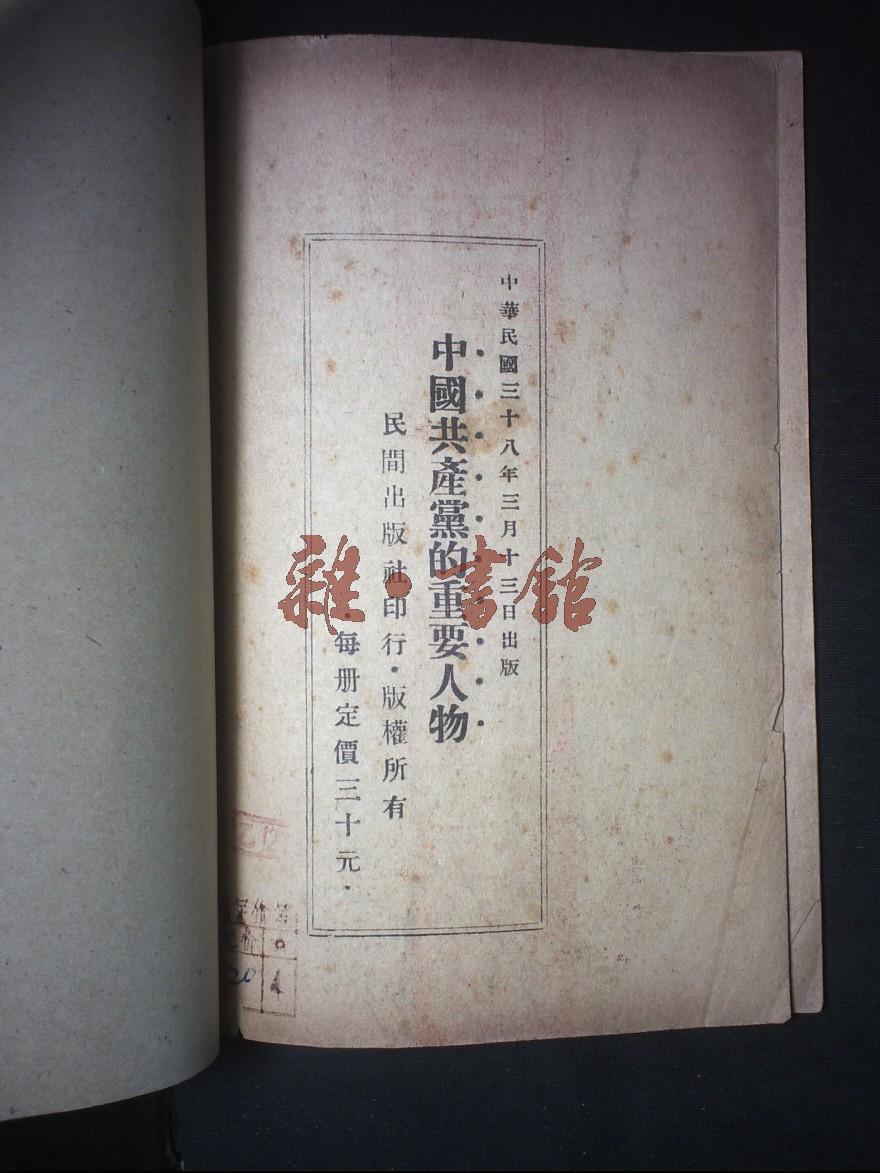 中華民國三十八年三月十三日出版
中國共產黨的重要人物
民間出版社印行·版權所有
·每册定價三十元·
雜·書館